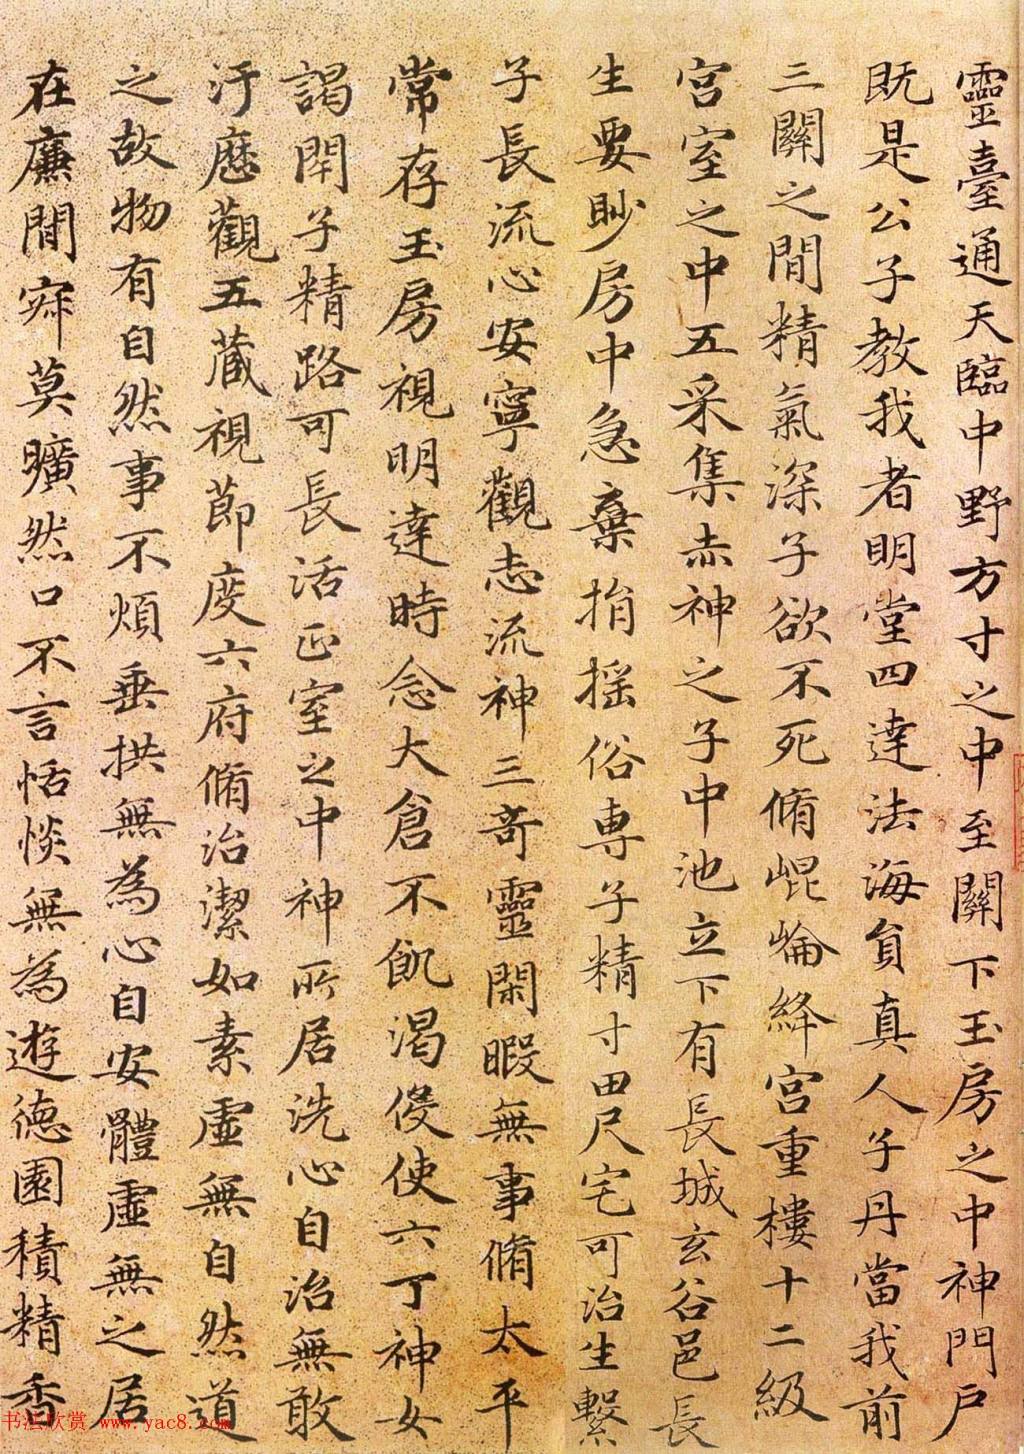 靈臺通天臨中野方寸之中至關下玉房之中神門戶
既是公子教我者明堂四達法海員真人子丹當我前
三關之間精氣深子欲不死脩崐崘絳宮重樓十二級
宮室之中五采集赤神之子中池立下有長城玄谷邑長
生要眇房中急棄捐搖俗専子精寸田尺宅可治生繫
子長流心安寧觀志流神三奇靈閑暇無事脩太平
常存玉房視明達時念大倉不飢渴侵使六丁神女
謁閇子精路可長活正室之中神所居洗心自治無敢
汙歷觀五蔵視節度六府脩治潔如素虛無自然道
之故物有自然事不煩垂拱無為心自安體虛無之居
在廉間寂莫曠然口不言恬惔無為遊德園積精香
书法欣赏 www.yac8.com